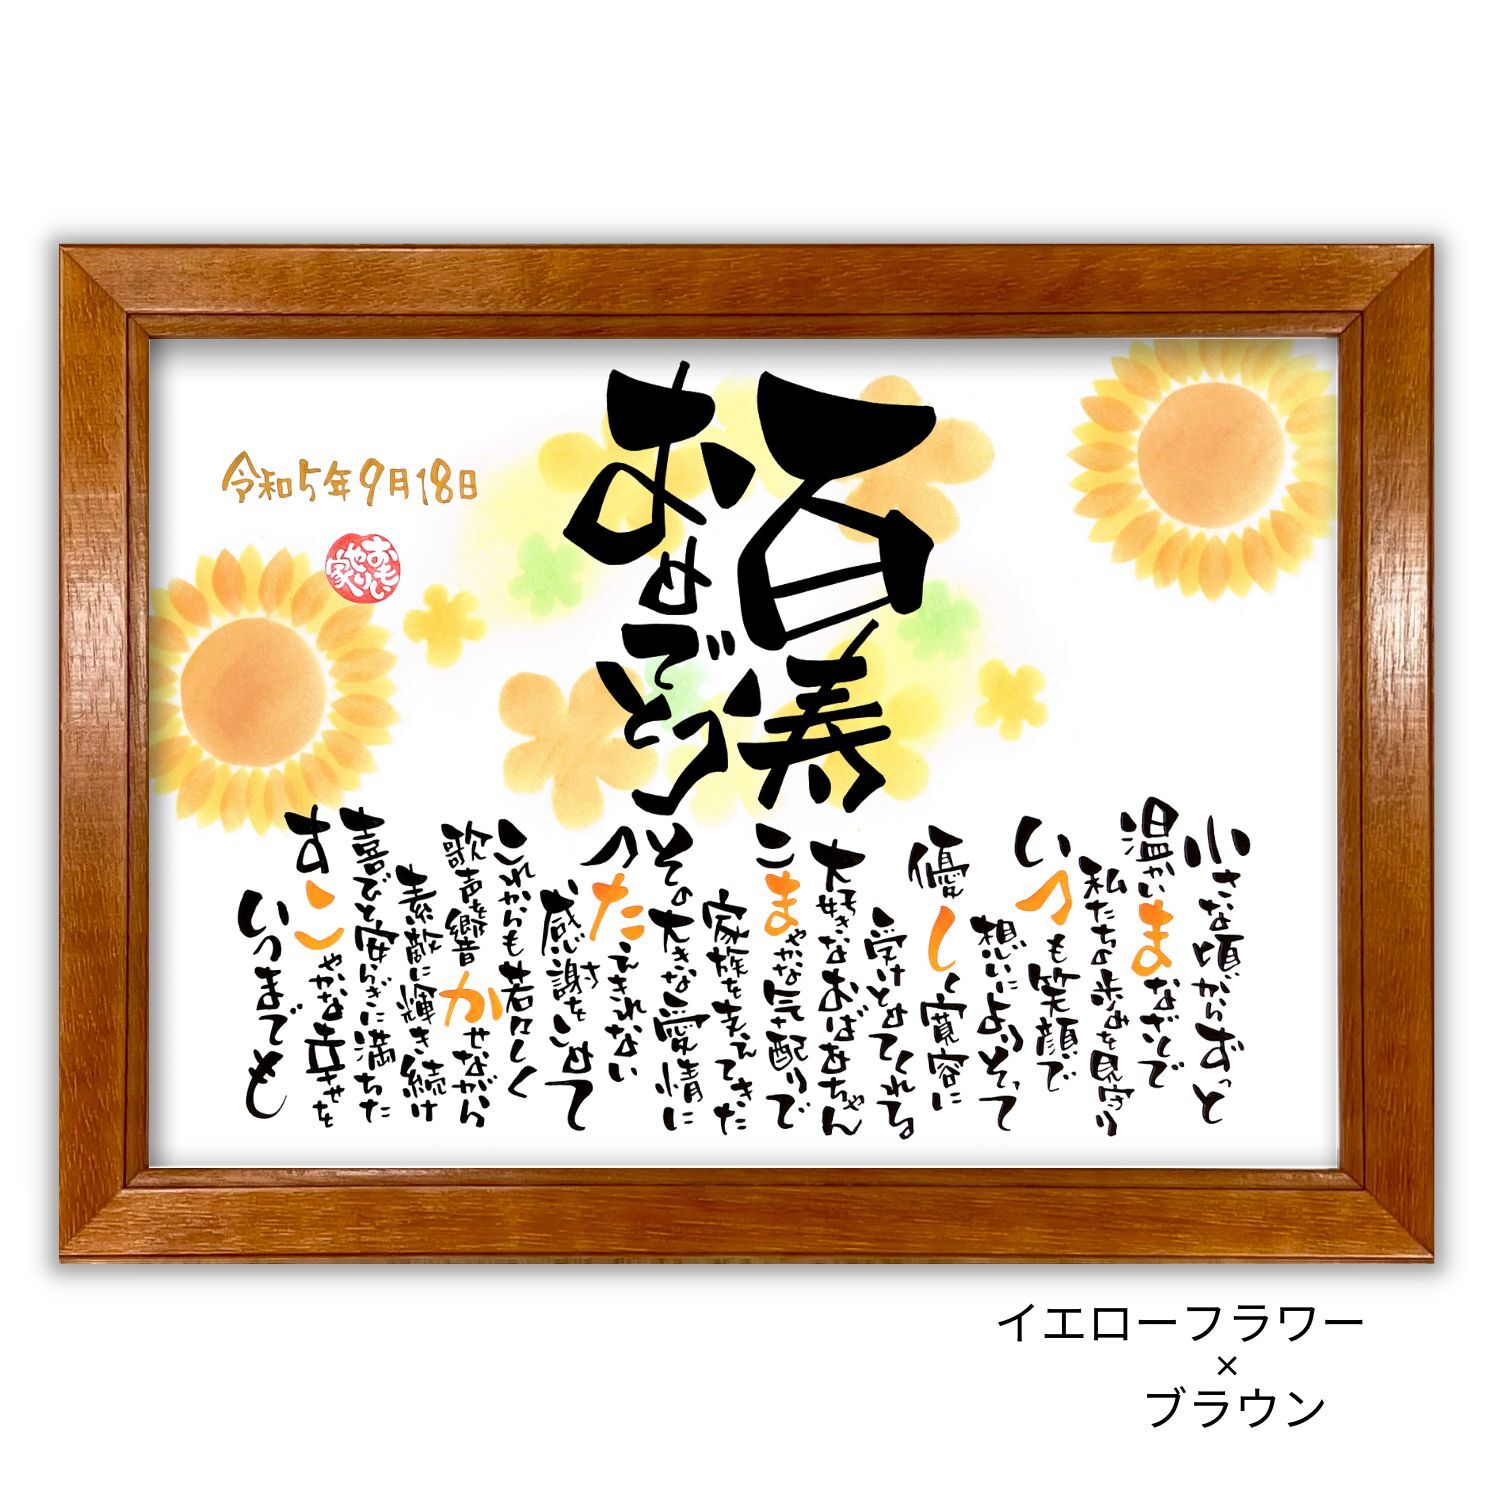 百寿
おめでとう
小さな頃からずっと
温かいまなざしで
私たちの歩みを見守り
いつも笑顔で
想いによりそって
優しく寛容に
受けとめてくれる
大好きなおばあちゃん
こまやかな気配りで
家族を支えてきた
その大きな愛情に
つたえきれない
感謝をこめて
これからも若々しく
歌声を響かせながら
素敵に輝き続け
喜びと安らぎに満ちた
すこやかな幸せを
いつまでも
令和5年9月18日
おもいやり家
イエローフラワー
×
ブラウン